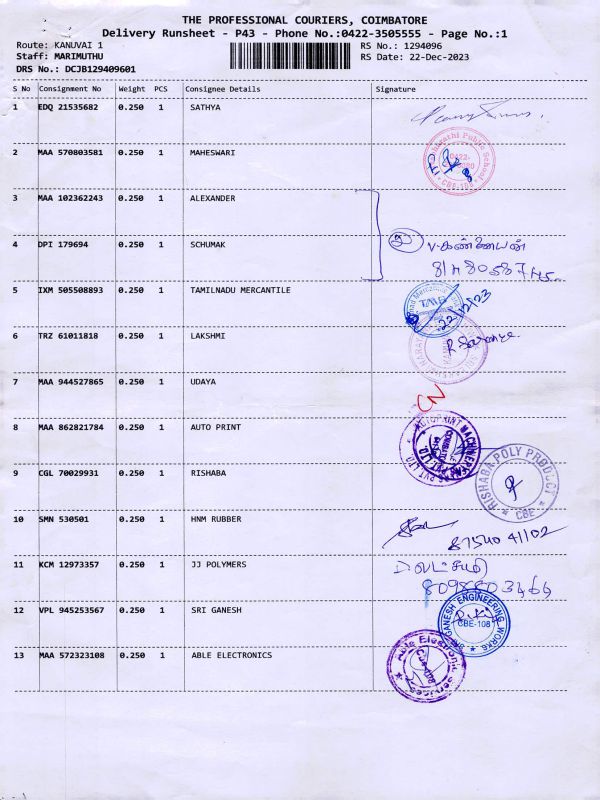 THE PROFESSIONAL COURIERS, COIMBATORE
Delivery Runsheet - P43 - Phone No.:0422-3505555 - Page No.:1
Route: KANUVAI 1 RS No.: 1294096
Staff: MARIMUTHU RS Date: 22-Dec-2023
DRS No.: DCJB129409601
S No Consignment No Weight PCS Consignee Details Signature
1 EDQ 21535682 0.250 1 SATHYA
2 MAA 570803581 0.250 1 MAHESWARI
Public School
CBE-108
3 MAA 102362243 0.250 1 ALEXANDER
4 DPI 179694 0.250 1 SCHUMAK
5 IXM 505508893 0.250 1 TAMILNADU MERCANTILE
TMB
22/12/23
6 TRZ 61011818 0.250 1 LAKSHMI
7 MAA 944527865 0.250 1 UDAYA
CN
8 MAA 862821784 0.250 1 AUTO PRINT
9 CGL 70029931 0.250 1 RISHABA
RISHABA POLY PRODUCT
CBE
10 SMN 530501 0.250 1 HNM RUBBER
87540 41102
11 KCM 12973357 0.250 1 JJ POLYMERS
8098803464
12 VPL 945253567 0.250 1 SRI GANESH
SRI GANESH ENGINEERING WORKS
CBE-108
13 MAA 572323108 0.250 1 ABLE ELECTRONICS
Able Electronic Services